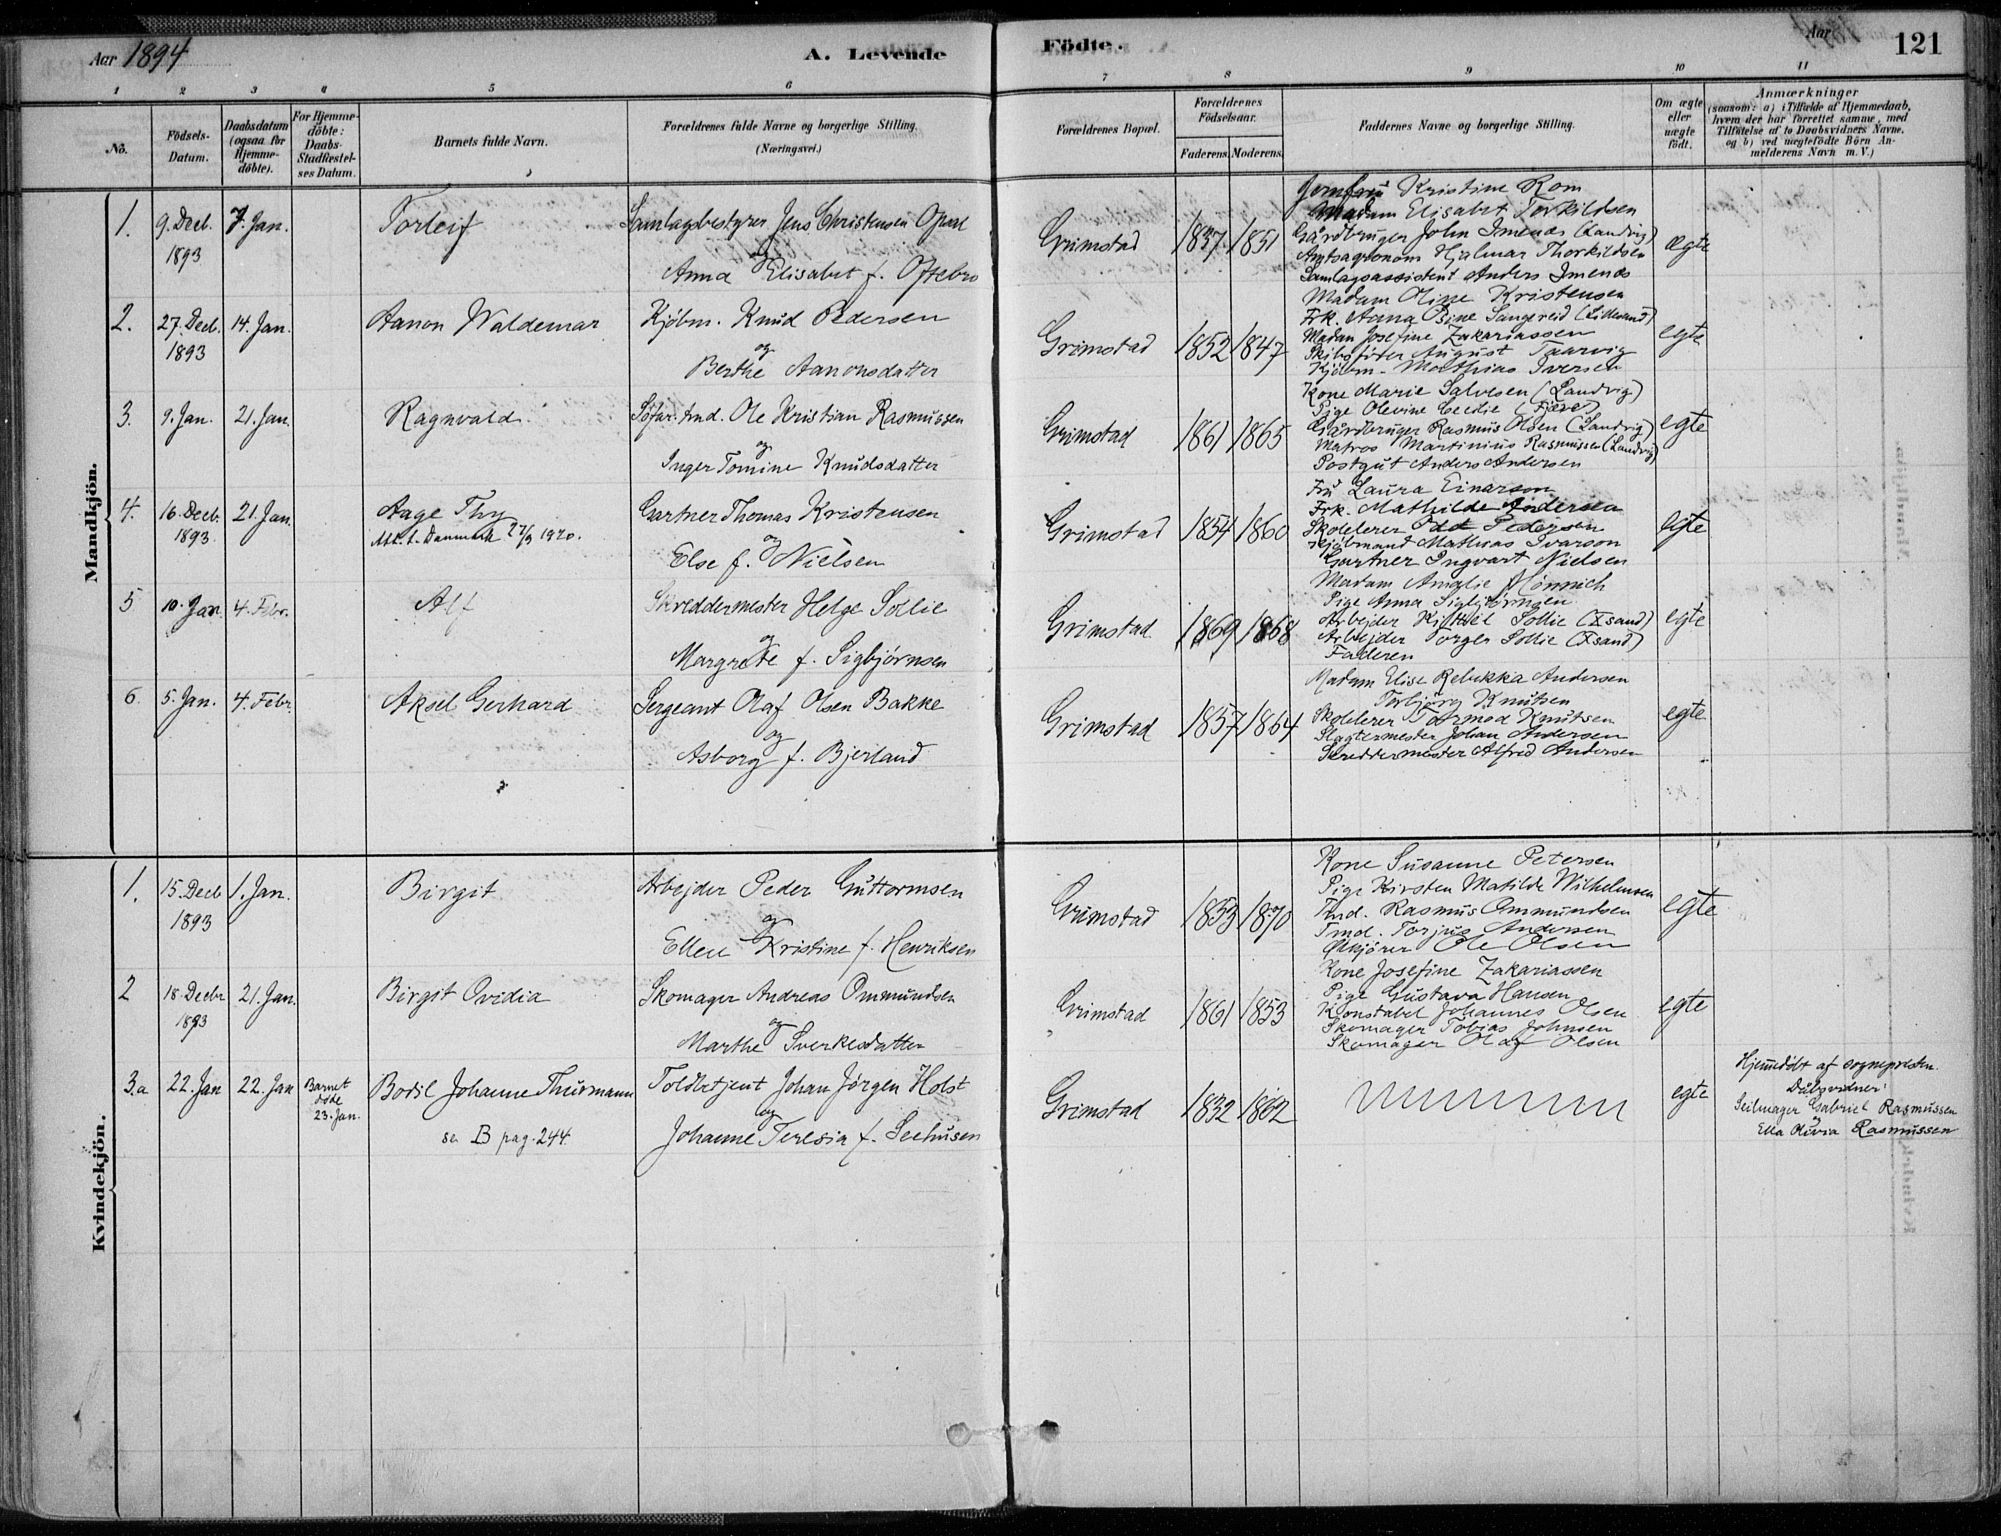 Aar 1894
A. Levende
Födte.
Aar
121
1 2 3 4 5 6 7 8 9 10 11
No.
Födsels-Datum.
Daabsdatum (ogsaa for Hjemme-döbte).
For Hjemme-döbte: Daabs-Stadfæstel-ses Datum.
Barnets fulde Navn.
Forældrenes fulde Navne og borgerlige Stilling.
(Næringsvei.)
Forældrenes Bopæl.
Forældrenes Födselsaar.
Faderens. Moderens.
Faddernes Navne og borgerlige Stilling.
Om ægte eller uægte födt.
Anmærkninger
(saasom: a) i Tilfælde af Hjemmedaab,
hvem der har forrettet samme, med
Tilföielse af to Daabsvidners Navne,
og b) ved uægtefödte Börn An-
melderens Navn m. V.)
Mandkjön.
1. 9. Decb. 1893 7. Jan. Torleif
Samlagsbestyrer Jens Christensen
og
Anna Elisabet f. Oftebro
Grimstad 1857 1851
Jomfru Kristine Rom
Madam Elisabet Torkildsen
Gårdbruger John Imenes (Landvig)
Amtsagronom Hjalmar Thorkildsen
Samlagsassistent Anders Imenes
ægte
2. 27. Decb. 1893 14. Jan. Aanon Waldemar
Kjøbm. Knud Pedersen
og
Berthe Aanonsdatter
Grimstad 1852 1847
Madam Oline Kristensen
Frk. Anna Sine Sangereid (Lillesand)
Madam Josefine Zakariassen
Skibsfører August Taarvig
Kjøbm. Mathias Iversen
egte
3. 9. Jan. 21. Jan. Ragnvald.
Søfar. tmd. Ole Kristian Rasmussen
og
Inger Tomine Knudsdatter
Grimstad 1861 1865
Kone Marie Salvesen (Landvig)
Pige Olevine Cecilie (Fjære)
Gårdbruger Rasmus Olsen (Landvig)
Matros Martinius Rasmussen (Landvig)
Postgut Anders Andersen
egte
4. 16. Decb. 1893 21. Jan. Aage Thy
Att. t. Danmark 27/3 1920.
Gartner Thomas Kristensen
og
Else f. Nielsen
Grimstad 1854 1860
Fru Laura Einarson
Frk. Mathilde Andersen
Skolelærer Odd Pedersen
Kjøbmand Mathias Ivarson
Gartner Ingvart Nielsen
egte
5 10. Jan. 4. Febr. Alf
Skreddermester Helge Sollie
og
Margrete f. Sigbjørnsen
Grimstad 1869 1868
Madam Amalie Mönnich
Pige Anna Sigbjørnsen
Arbejder Kittel Sollie (Xsand)
Arbejder Torger Sollie (Xsand)
Faderen
egte
6 5. Jan. 4. Febr. Aksel Gerhard
Sergeant Olaf Olsen Bakke
og
Asborg f. Bjerland
Grimstad 1857 1864
Madam Elise Rebekka Andersen
Torbjørg Knutsen
Skolelerer Tormod Knutsen
Slagtermester Johan Andersen
Skreddermester Alfred Andersen
egte
Kvindekjön.
1. 15. Decb 1893 1. Jan. Birgit
Arbejder Peder Guttormsen
og
Ellen Kristine f. Henriksen
Grimstad 1853 1870
Kone Susanne Petersen
Pige Kirsten Matilde Wilhelmsen
Tmd. Rasmus Ommundsen
Tmd. Torjus Andersen
Ole Olsen
egte
2 18. Decbr 1893 21. Jan. Birgit Ovidia
Skomager Andreas Ommundsen
og
Marthe Sverkesdatter
Grimstad 1861 1853
Kone Josefine Zakariassen
Pige Gustava Hansen
Konstabel Johannes Olsen
Skomager Tobias Johnsen
Skomager Olaf Olsen
egte
3.a 22. Jan 22. Jan Barnet døde 23. Jan. Bodil Johanne Thurmann
se B pag. 244.
Toldbetjent Johan Jørgen Holst
og
Johanne Teresia f. Seehusen
Grimstad 1832 1862
egte
Hjemmedøbt af sognepresten.
Dåbsvidner:
Seilmager Gabriel Rasmussen
Ella Olivia Rasmussen